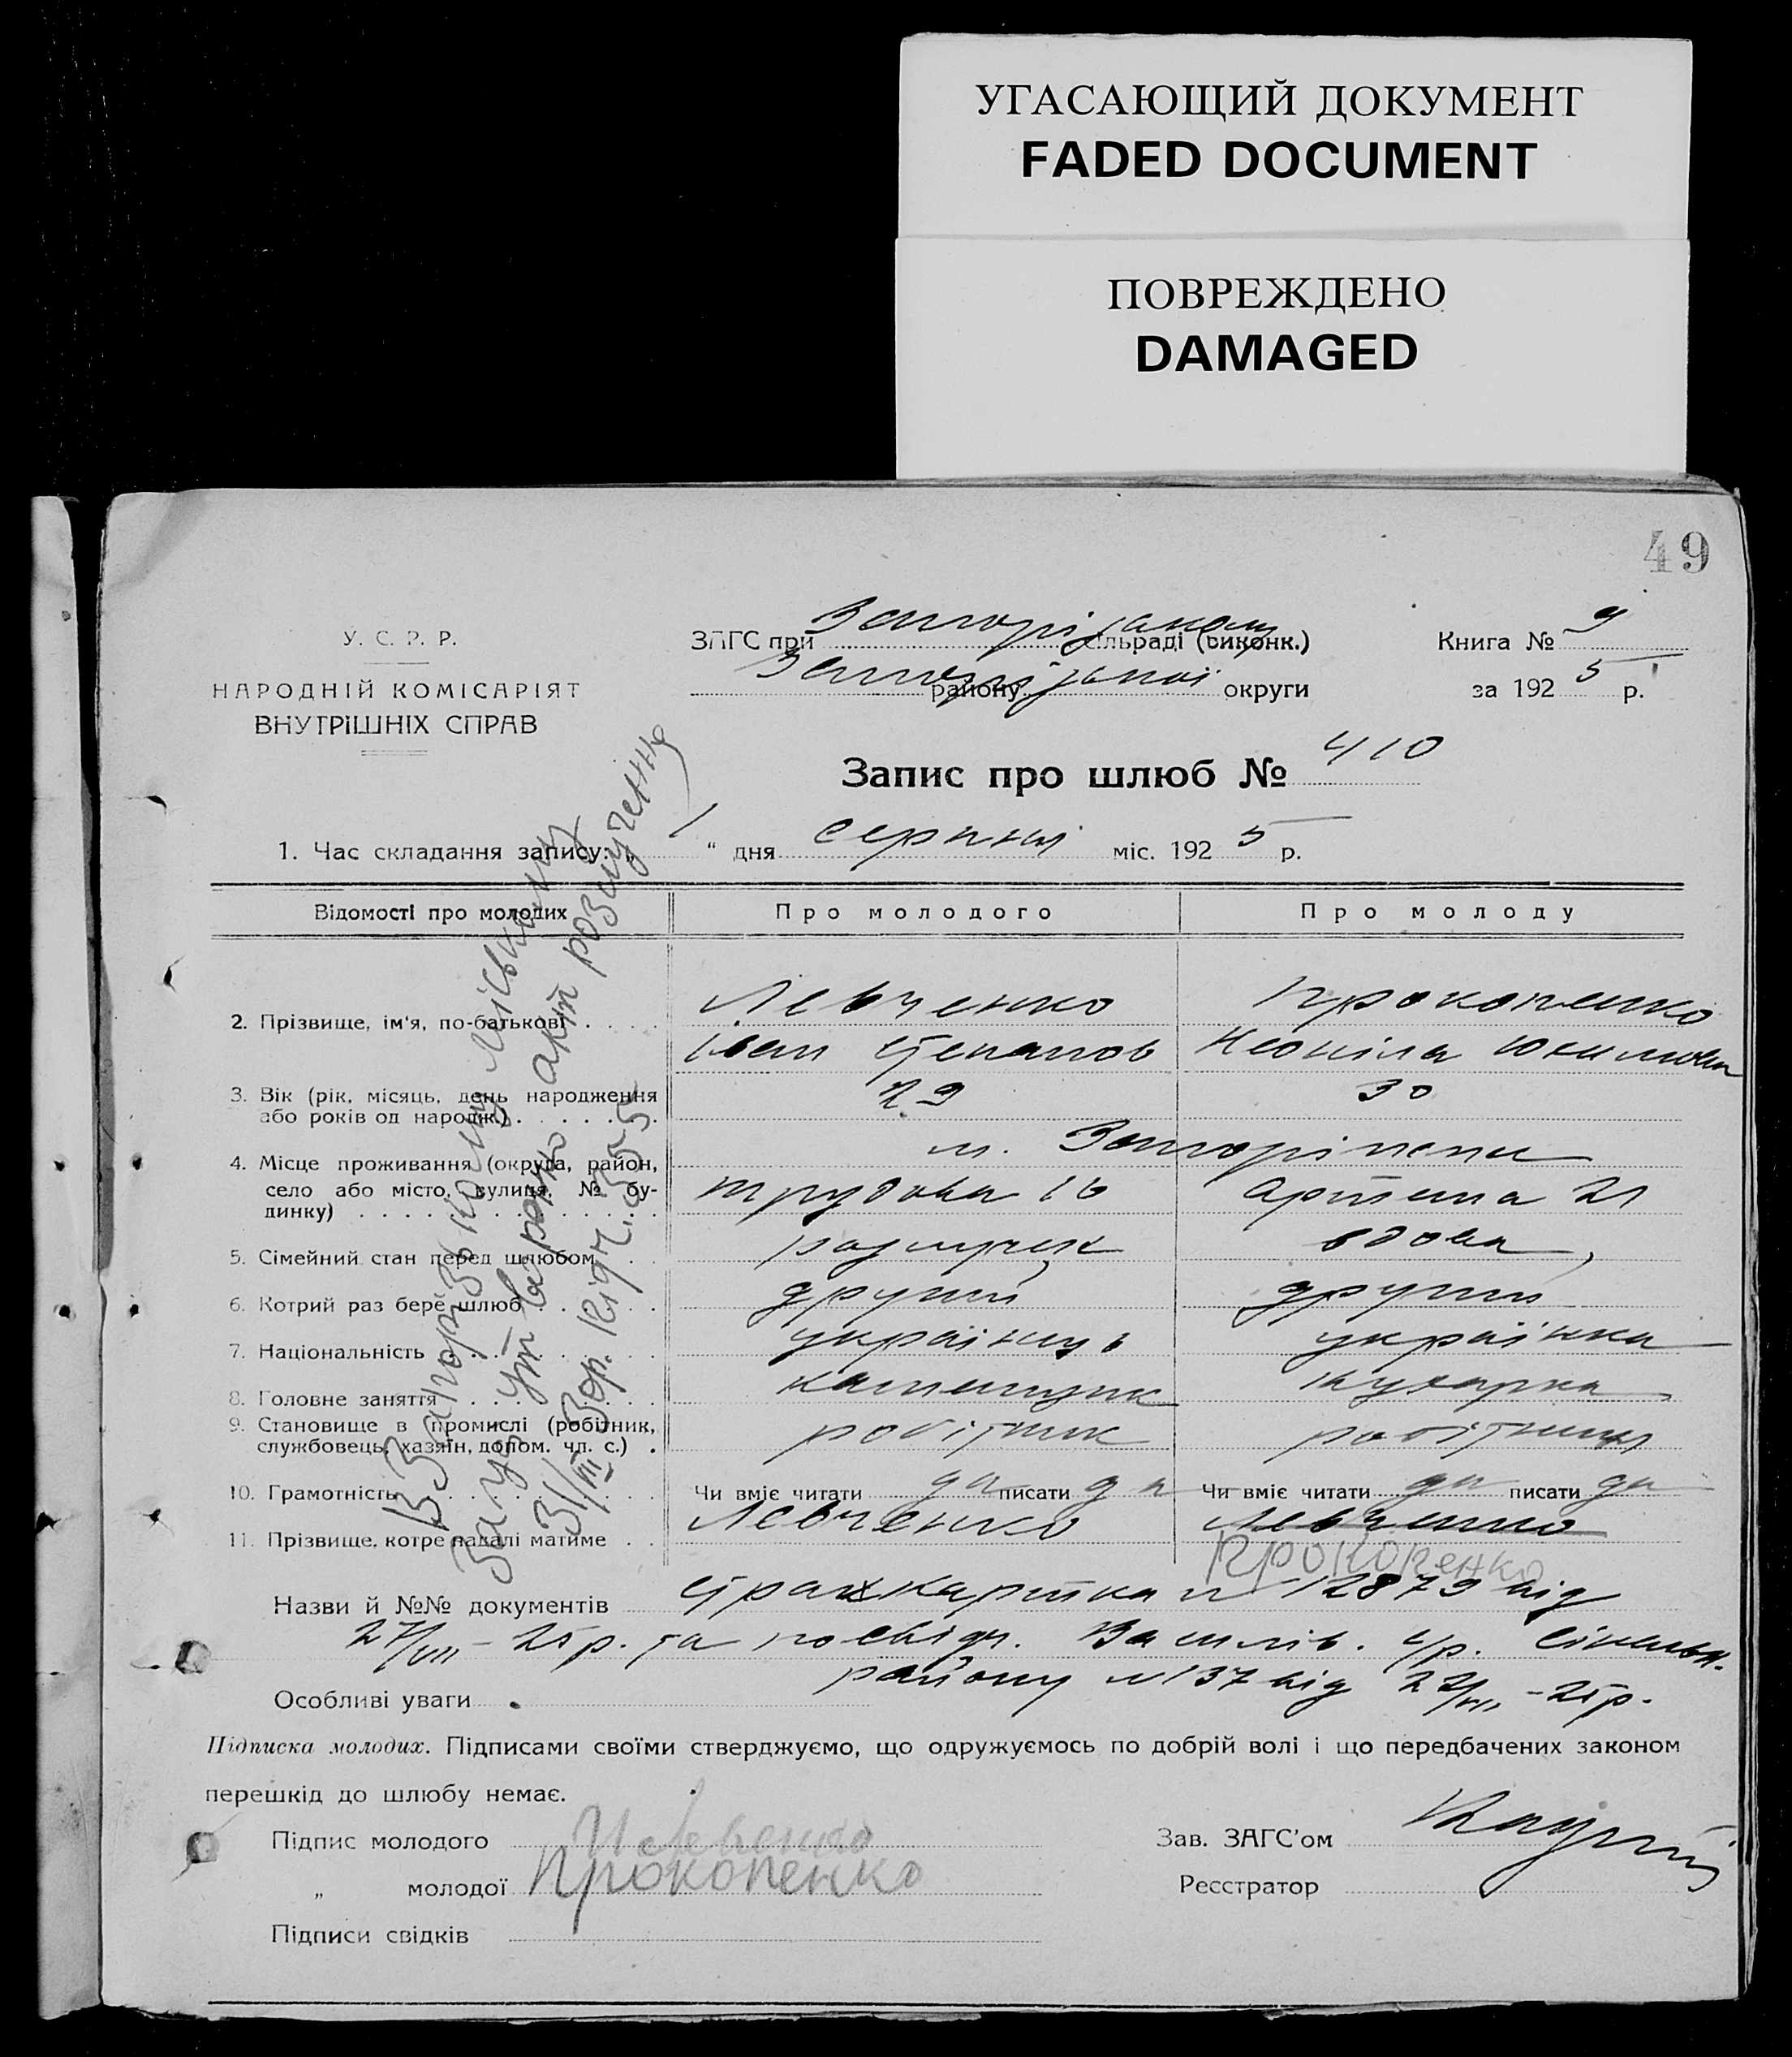 УГАСАЮЩИЙ ДОКУМЕНТ
FADED DOCUMENT
ПОВРЕЖДЕНО
DAMAGED
49
У. С. Р. Р.
НАРОДНІЙ КОМІСАРІЯТ
ВНУТРІШНІХ СПРАВ
ЗАГС при Запорізькому сільраді (виконк.)
Запорізької району округи
Книга № 9
за 1925 р.
Запис про шлюб № 410
1. Час складання запису: „ 1 “ дня серпня міс. 1925 р.
Відомості про молодих Про молодого Про молоду
2. Прізвище, ім'я, по-батькові Левченко Прокопенко
Іван Степанов Неоніла Юхимовна
3. Вік (рік, місяць, день народження або років од народж.) 29 30
4. Місце проживання (округа, район, село або місто, вулиця, № будинку) м. Запоріжжя
Трудова 16 Артема 21
5. Сімейний стан перед шлюбом розлучен вдова
6. Котрий раз бере шлюб другий другий
7. Національність українець українка
8. Головне заняття кухарка
9. Становище в промислі (робітник, службовець, хазяїн, допом. чл. с.) робітник робітниця
10. Грамотність Чи вміє читати да писати да Чи вміє читати да писати да
11. Прізвище, котре надалі матиме Левченко Левченко
Прокопенко
Назви й №№ документів Страхкартка № 12879 від
27/VII – 25 р. та посвідч. Василів. с/р. Сінельн.
району № 137 від 27/VII – 25 р.
Особливі уваги
Підписка молодих. Підписами своїми стверджуємо, що одружуємось по добрій волі і що передбачених законом
перешкід до шлюбу немає.
Підпис молодого И Левченко
„ молодої Прокопенко
Підписи свідків
Зав. ЗАГС'ом
Реєстратор
В Запорізькому міському
Загсі акт розлучення
31/VII